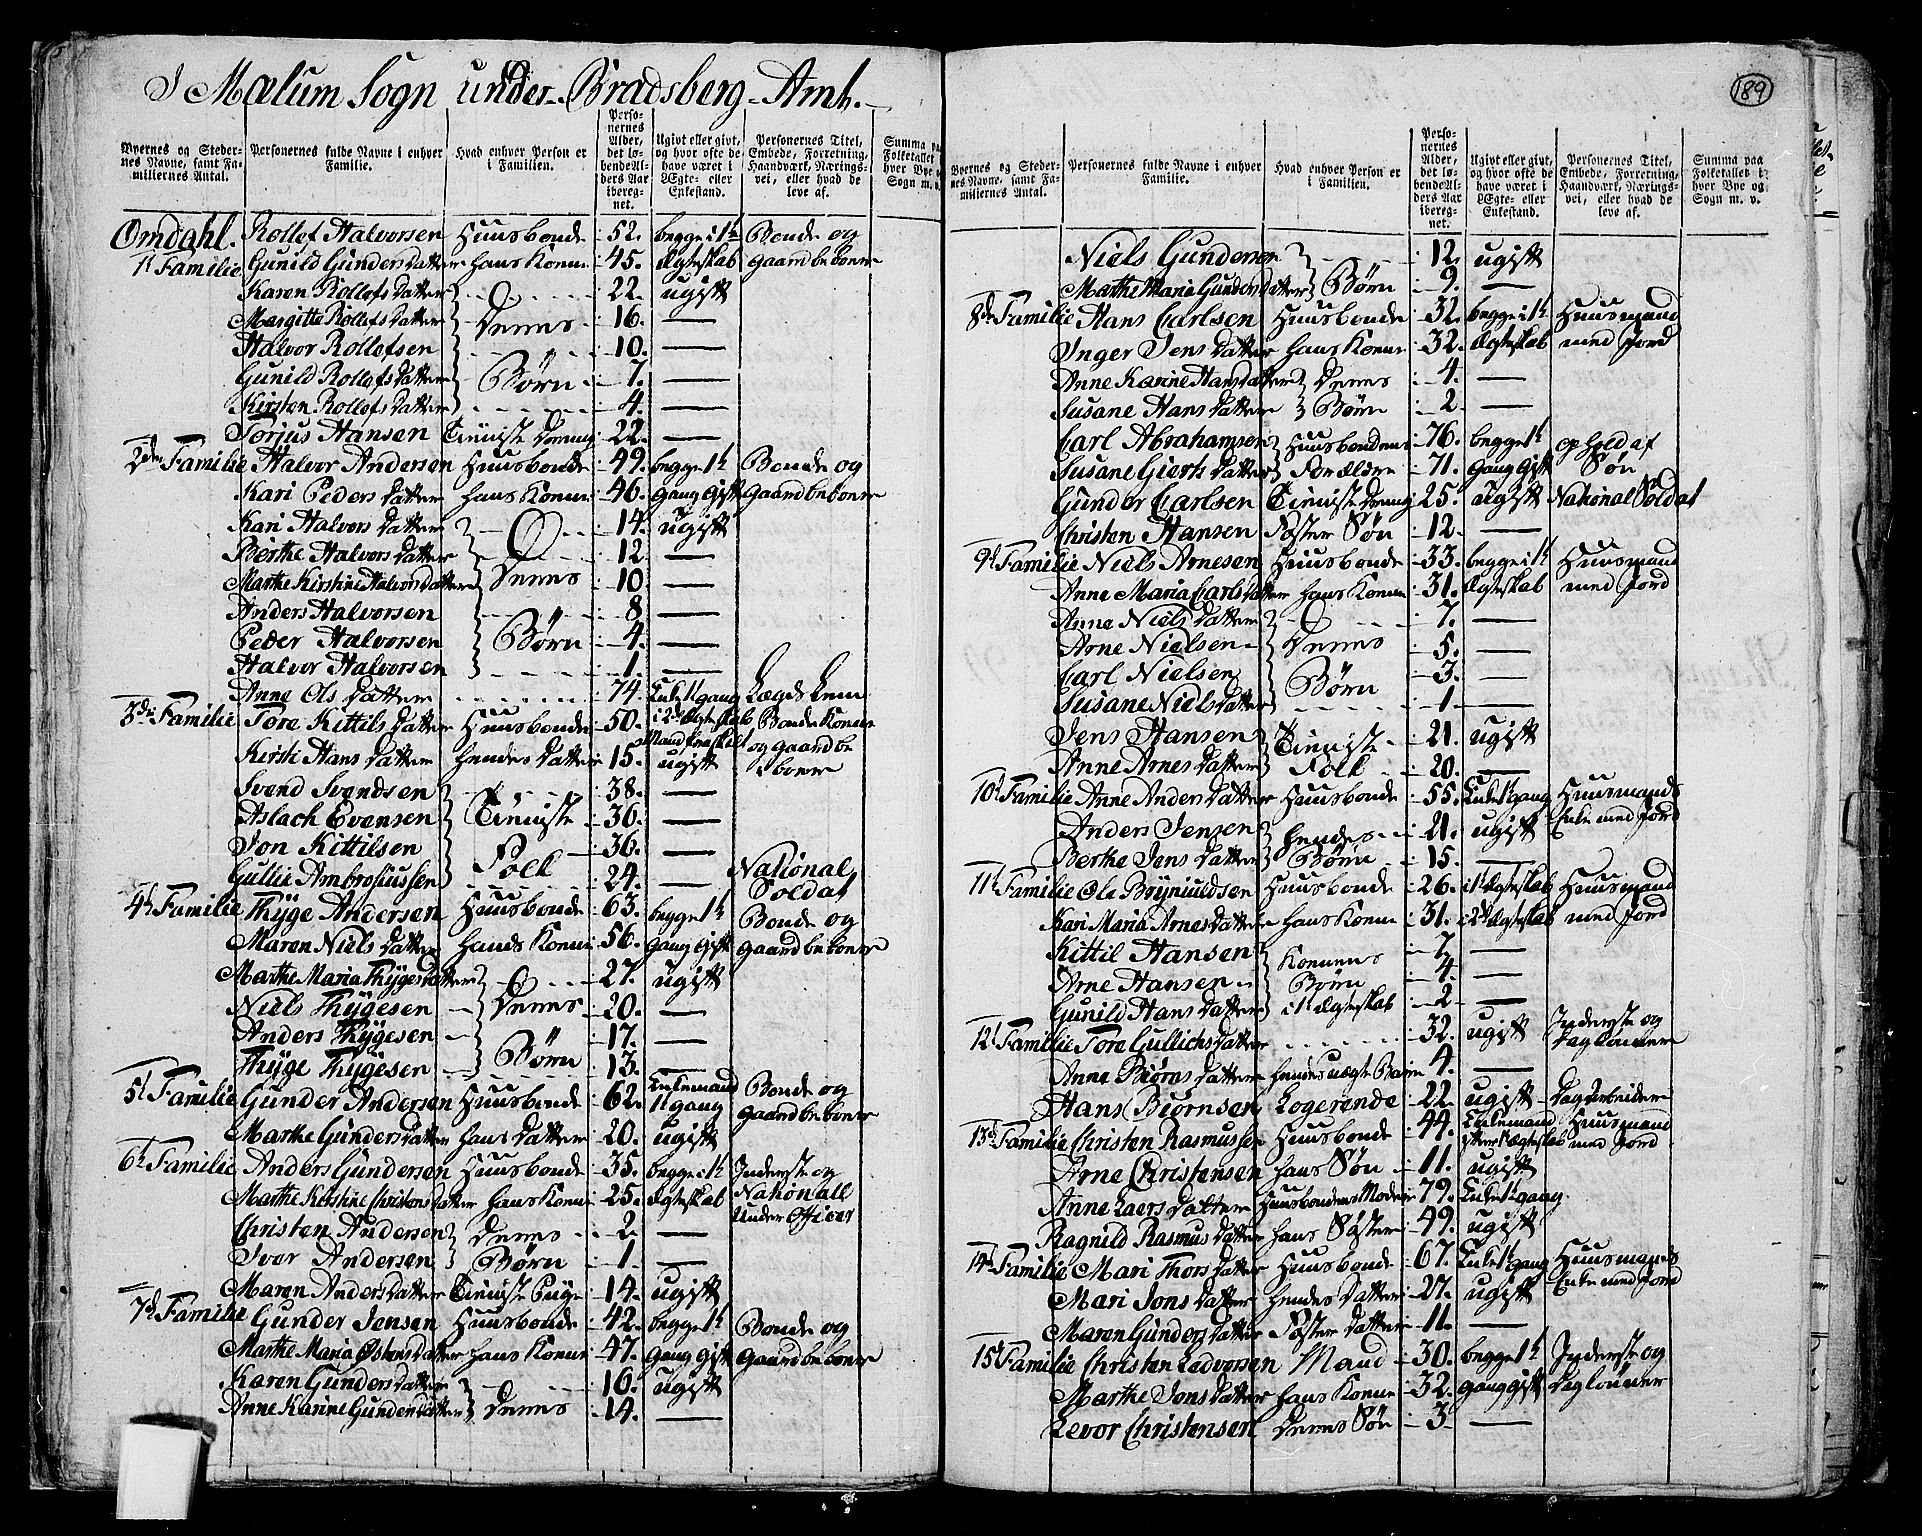 I Mælum Sogn under Bradsberg Amt.
Byernes og Stedernes Navne, samt Familiernes Antal.
Personernes fulde Navne i enhver Familie.
Hvad enhver Person er i Familien.
Personernes Alder, det løbende Alders Aar iberegnet.
Ugivt eller givt, og hvor ofte de have været i Ægte- eller Enkestand.
Personernes Titel, Embede, Forretning, Haandværk, Næringsvei, eller hvad de leve af.
Summa paa Folketallet i hver Bye og Sogn m. v.
Omdahl. Rollef Halvorsen Huusbonde 52. begge i 1t Bonde og
1t Familie Gunild Gundersdatter hans Konne 45. Ægteskab gaardbeboere
Karen Rollefsdatter 22. ugift
Margitte Rollefsdatter Deres 16. —
Halvor Rollefsen 10. —
Gunild Rollefsdatter Børn 7. —
Kirsten Rollefsdatter 4. —
Torjus Hansen Tieniste Dreng 22. —
2den Familie Halvor Andersen Huusbonde 49. begge 1t Bonde og
Kari Pedersdatter hans Konne 46. gang gift gaardbeboere
Kari Halvorsdatter 14. ugift
Berthe Halvorsdatter 12 —
Marthe Kirstine Halvorsdatter Deres 10 —
Anders Halvorsen 8 —
Peder Halvorsen Børn 4. —
Halvor Halvorsen 1. —
Anne Olsdatter 74. Enke 1t gang Lægds Lem
3die Familie Tore Kittilsdatter Huusbonde 50. i 2det Ægteskab Bonde Konne
Kirsti Hansdatter hendes datter 15. ugift og gaardbeboere
Svend Svendsen 38. —
Aslach Evensen Tieniste 36. —
Jon Kittilsen 36. —
Gullic Ambrosiussen Folk 24. — National Soldat
4t Familie Thyge Andersen Huusbonde 63. begge 1t Bonde og
Maren Nielsdatter hands Konne 56. gang gift gaardbeboere
Marthe Maria Thygesdatter 27. ugift
Niels Thygesen Deres 20. —
Anders Thygesen 17. —
Thyge Thygesen Børn 13. —
5t Familie Gunder Andersen Huusbonde 62. Enkemand 1t gang Bonde og gaardbeboere
Marthe Gundersdatter hans datter 20. ugift
6t Familie Anders Gundersen Huusbonde 35. begge i 1t Inderste og
Marthe Kirstine Christensdatter hans Konne 25. Ægteskab National Under Officer
Christen Andersen Deres 2. —
Iver Andersen Børn 1. —
Maren Andersdatter Tieniste Pige 14. ugift
7d Familie Gunder Jensen Huusbonde 42. begge 1t Bonde og
Marthe Maria Østensdatter hans Konne 47. gang gift gaardbeboere
Karen Gundersdatter 16. ugift
Anne Karine Gundersdatter Deres 14. —
189
Byernes og Stedernes Navne, samt Familiernes Antal.
Personernes fulde Navne i enhver Familie.
Hvad enhver Person er i Familien.
Personernes Alder, det løbende Alders Aar iberegnet.
Ugivt eller givt, og hvor ofte de have været i Ægte- eller Enkestand.
Personernes Titel, Embede, Forretning, Haandværk, Næringsvei, eller hvad de leve af.
Summa paa Folketallet i hver Bye og Sogn m. v.
Niels Gundersen 12. ugift
Marthe Maria Gundersdatter Børn 9. —
8de Familie Hans Carlsen Huusbonde 32. begge i 1t Huusmand
Inger Jensdatter hans Konne 32. Ægteskab med Jord
Anne Karine Hansdatter Deres 4. —
Susane Hansdatter Børn 2. —
Carl Abrahamsen Huusbondens 76. begge 1t ophold af
Susane Giertsdatter Forældre 71. gang gift Søn
Gunder Carlsen Tieniste Dreng 25. ugift National Soldat
Christen Hansen Foster Søn 12. —
9d Familie Niels Arnesen Huusbonde 33. begge i 1t Huusmand
Anne Maria Carlsdatter hans Konne 31. Ægteskab med Jord
Anne Nielsdatter 7. —
Arne Nielsen Deres 5. —
Carl Nielsen 3. —
Susane Nielsdatter Børn 1 —
Jens Hansen Tieniste 21. ugift
Anne Arnesdatter Folk 20. —
10t Familie Anne Andersdatter Huusbonde 55. Enke 1t gang Huusmands
Anders Jensen hendes 21. ugift Enke med Jord
Berthe Jensdatter Børn 15. —
11t Familie Ole Brynjuldsen Huusbonde 26. i 1t Ægteskab Huusmand
Kari Maria Arnesdatter hans Konne 31. i 2det Ægteskab med Jord
Kittil Hansen Konnens 7. —
Arne Hansen Børn 4. —
Gunild Hansdatter i 1t Ægteskab 2 —
12t Familie Tore Gullichsdatter 32. ugift Inderste og Daglønner
Anne Biørnsdatter hendes uægte Barn 4. —
Hans Biørnsen Logerende 22. ugift Dagarbeider
13d Familie Christen Rasmussen Huusbonde 44. Enkemand efter 1t Ægteskab Huusmand med Jord
Arne Christensen hans Søn 11. ugift
Anne Laersdatter Huusbondens Moder 79. Enke 1t gang
Ragnild Rasmusdatter hans Søster 49. ugift
14d Familie Mari Thorsdatter Huusbonde 67. Enke 1t gang Huusmands
Mari Jonsdatter hendes datter 27. ugift Enke med Jord
Maren Gundersdatter Foster datter 11. —
15d Familie Christen Ledvorsen Mand 30. begge 1t Inderste og
Marthe Jonsdatter hans Konne 32. gang gift Daglønner
Levor Christensen Deres Søn 3 —